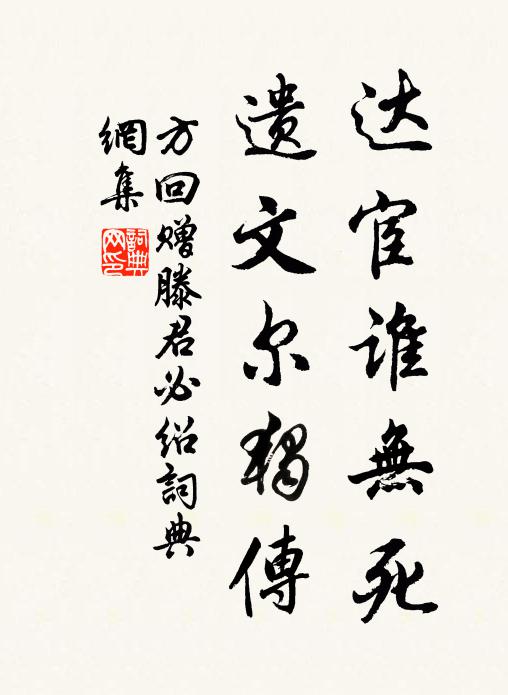 达宦谁無死
遗文尔獨傳
方回赠滕君必绍詞典
網集
詞典
网印